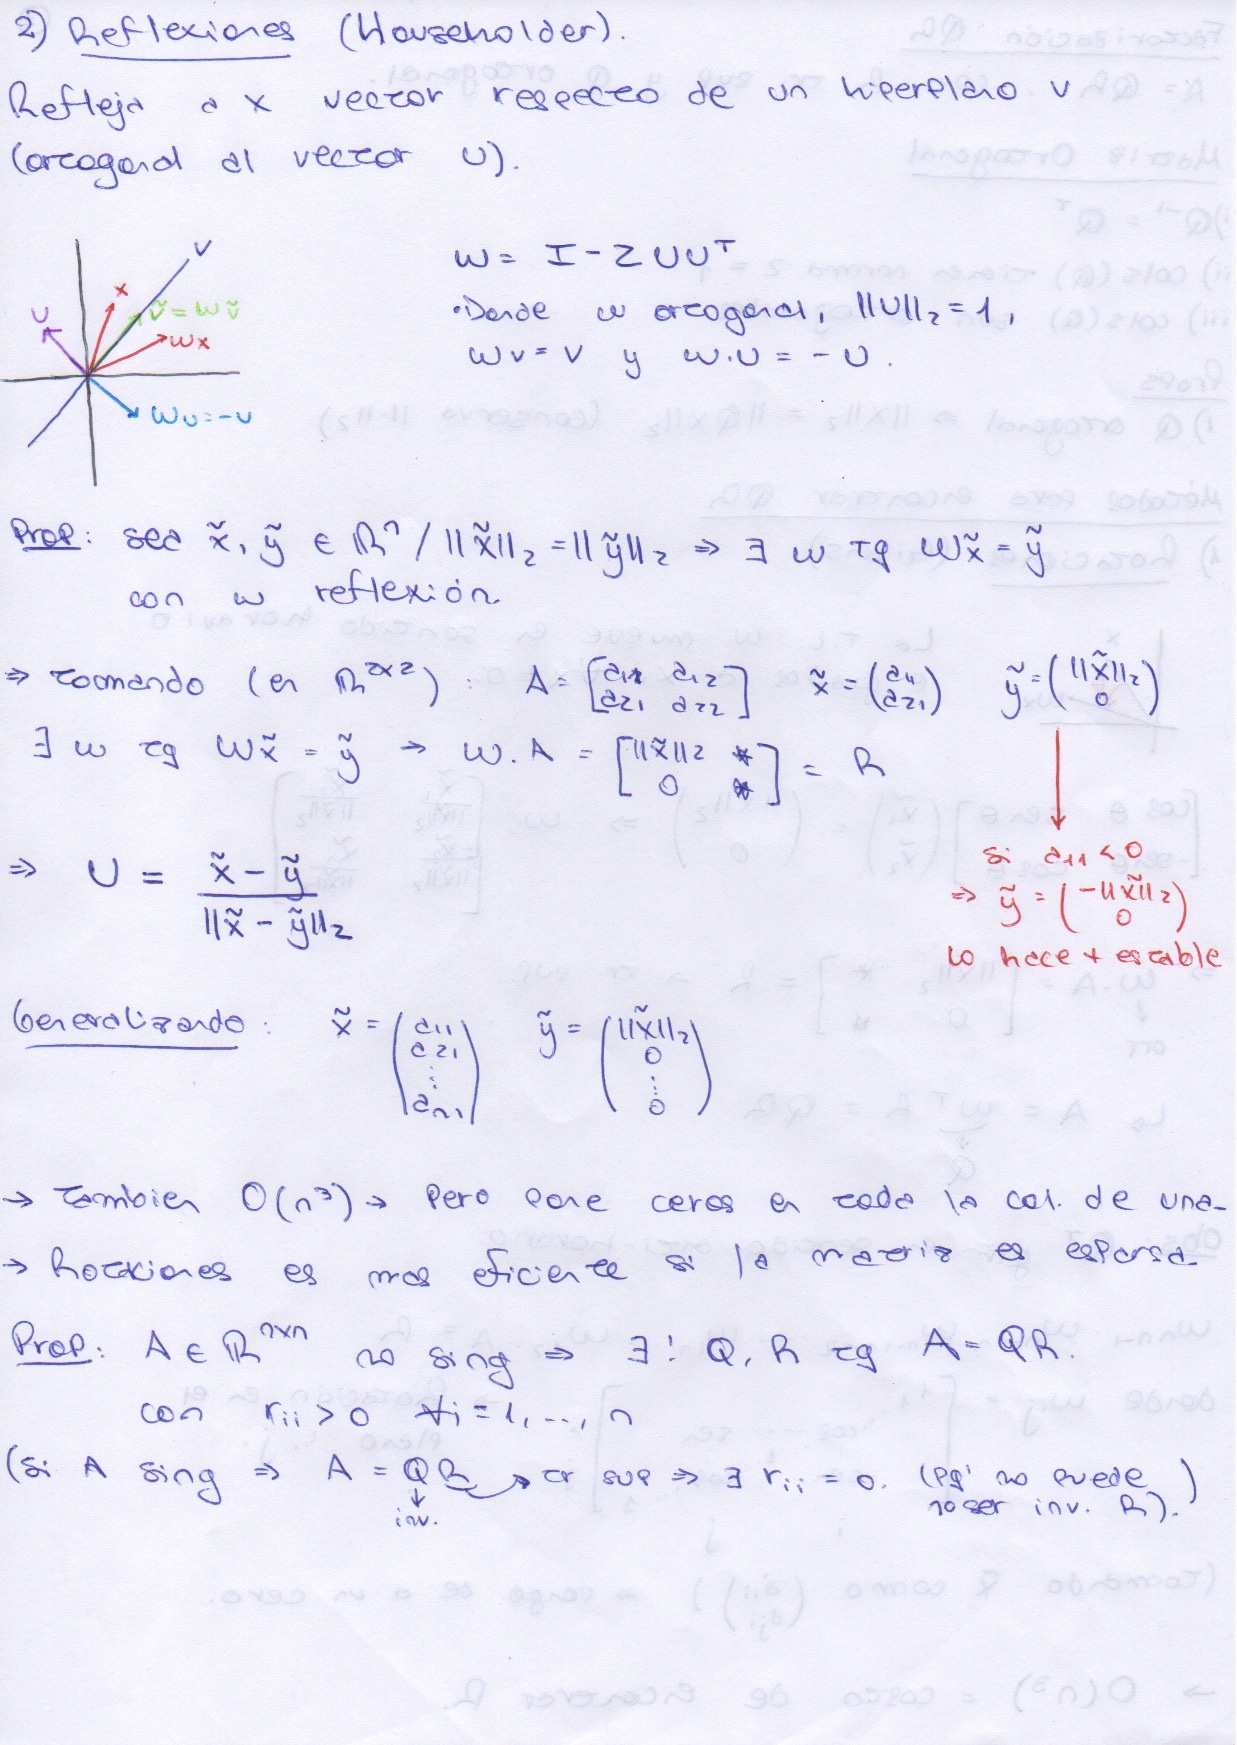 2) Reflexiones (Householder).
Refleja a x vector respecto de un hiperplano v
(ortogonal al vector u).
v
x
u
ṽ = wṽ
wx
wu = -u
w = I - 2uuᵀ
•Donde w ortogonal, ||u||₂ = 1,
wv = v y w.u = -u.
Prop: sea x̃, ỹ ∈ ℝⁿ / ||x̃||₂ = ||ỹ||₂ ⇒ ∃ w tq wx̃ = ỹ
con w reflexión.
⇒ tomando (en ℝ²ˣ²): A = [a₁₁ a₁₂; a₂₁ a₂₂] x̃ = (a₁₁; a₂₁) ỹ = (||x̃||₂; 0)
∃ w tq wx̃ = ỹ → w.A = [||x̃||₂ *; 0 *] = R
si a₁₁ < 0
⇒ ỹ = (-||x̃||₂; 0)
lo hace + estable
⇒ u = (x̃ - ỹ) / ||x̃ - ỹ||₂
Generalizando: x̃ = (a₁₁; a₂₁; ⋮; aₙ₁) ỹ = (||x̃||₂; 0; ⋮; 0)
→ tambien O(n³) → pero pone ceros en toda la col. de una-
→ Rotaciones es mas eficiente si la matriz es esparsa
Prop: A ∈ ℝⁿˣⁿ no sing ⇒ ∃! Q, R tq A = QR.
con rᵢᵢ > 0 ∀i = 1, ..., n
(si A sing ⇒ A = QR → tr sup ⇒ ∃ rᵢᵢ = 0. (pq' no puede
inv.
no ser inv. R).)